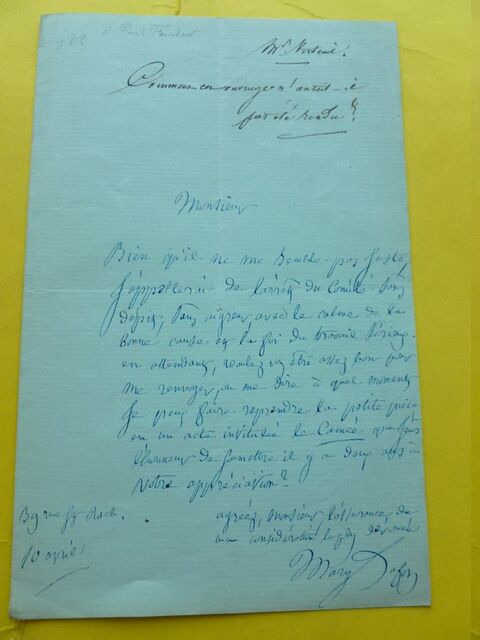 à Paul Foucher
Mr Verteuil.
Comment cet ouvrage n'aurait-il
pas été rendu ?
Monsieur
Bien qu'il ne me semble pas juste,
j'appellerai de l'arrêt du Comité sans
dépit, sans aigreur avec le calme de la
bonne cause et la foi du travail sérieux.
en attendant, voulez vous être assez bon pour
me renvoyer, ou me dire à quel moment
je peux faire reprendre la petite pièce
en un acte intitulée le Camée que j'eus
l'honneur de soumettre il y a deux ans à
votre appréciation ?
agréez, Monsieur l'assurance de
ma considération la plus dévouée
39 rue St Roch.
10 avril
Mary Lafon